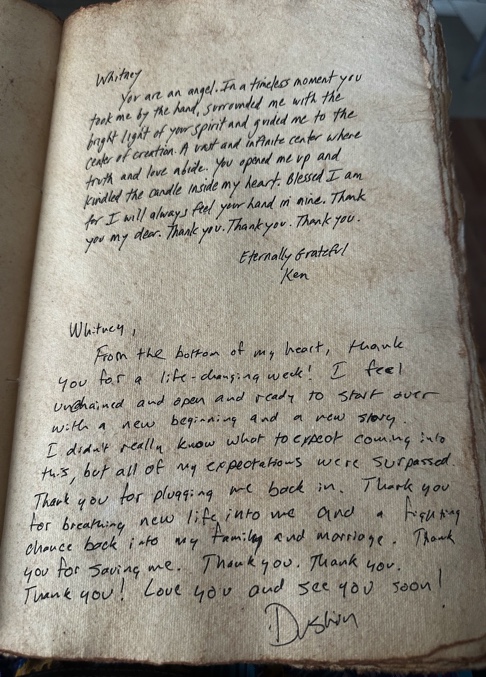 Whitney
You are an angel. In a timeless moment you
took me by the hand, surrounded me with the
bright light of your spirit and guided me to the
center of creation. A vast and infinite center where
truth and love abide. You opened me up and
kindled the candle inside my heart. Blessed I am
for I will always feel your hand in mine. Thank
you my dear. Thank you. Thank you. Thank you.
Eternally Grateful
Ken
Whitney,
From the bottom of my heart, thank
you for a life-changing week! I feel
unchained and open and ready to start over
with a new beginning and a new story.
I didn't really know what to expect coming into
this, but all of my expectations were surpassed.
Thank you for plugging me back in. Thank you
for breathing new life into me and a fighting
chance back into my family and marriage. Thank
you for saving me. Thank you. Thank you.
Thank you! Love you and see you soon!
Dustin